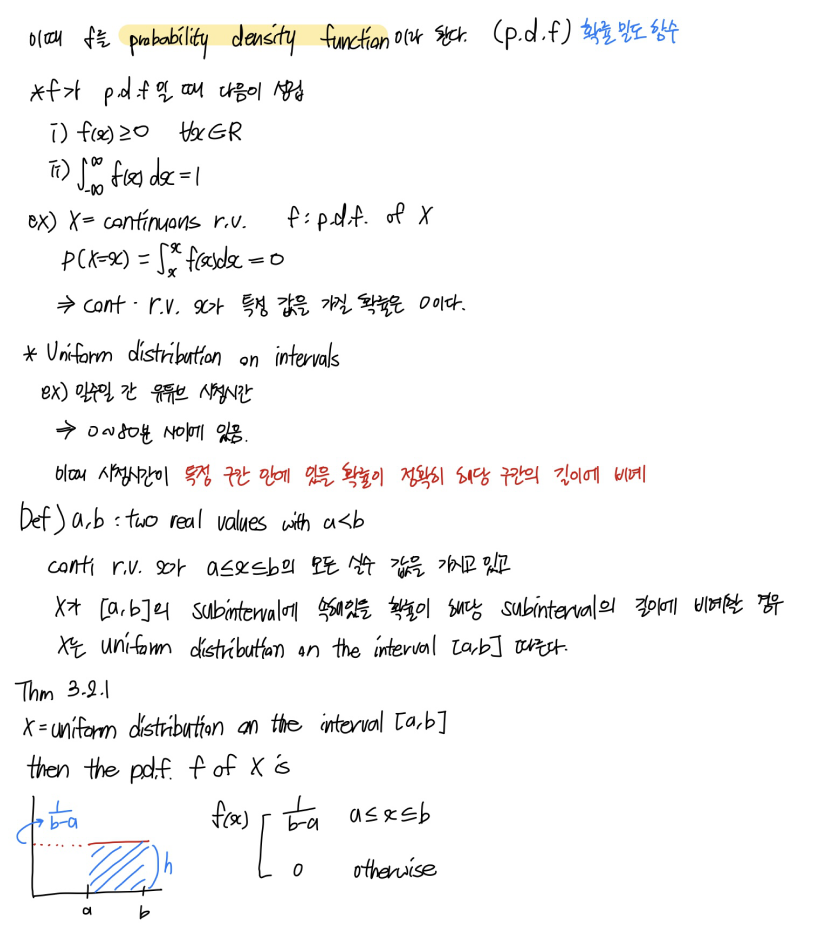 이때 f를 probability density function이라 한다. (p.d.f) 확률 밀도 함수
*f가 p.d.f일 때 다음이 성립
i) f(x)≥0 ∀x∈R
ii) ∫_{-∞}^{∞} f(x) dx=1
ex) X= continuous r.v. f: p.d.f. of X
P(X=x) = ∫_x^x f(x)dx = 0
⇒ cont. r.v. x가 특정 값을 가질 확률은 0이다.
* Uniform distribution on intervals
ex) 일주일 간 유튜브 시청시간
⇒ 0~80분 사이에 있음.
이때 시청시간이 특정 구간 안에 있을 확률이 정확히 해당 구간의 길이에 비례
Def) a,b : two real values with a<b
conti r.v. x가 a≤x≤b의 모든 실수 값을 가지고 있고
X가 [a,b]의 subinterval에 속해있을 확률이 해당 subinterval의 길이에 비례할 경우
X는 uniform distribution on the interval [a,b] 따른다.
Thm 3.2.1
X=uniform distribution on the interval [a,b]
then the p.d.f. f of X is
1/(b-a)
h
a b
f(x) [ 1/(b-a) a≤x≤b
0 otherwise